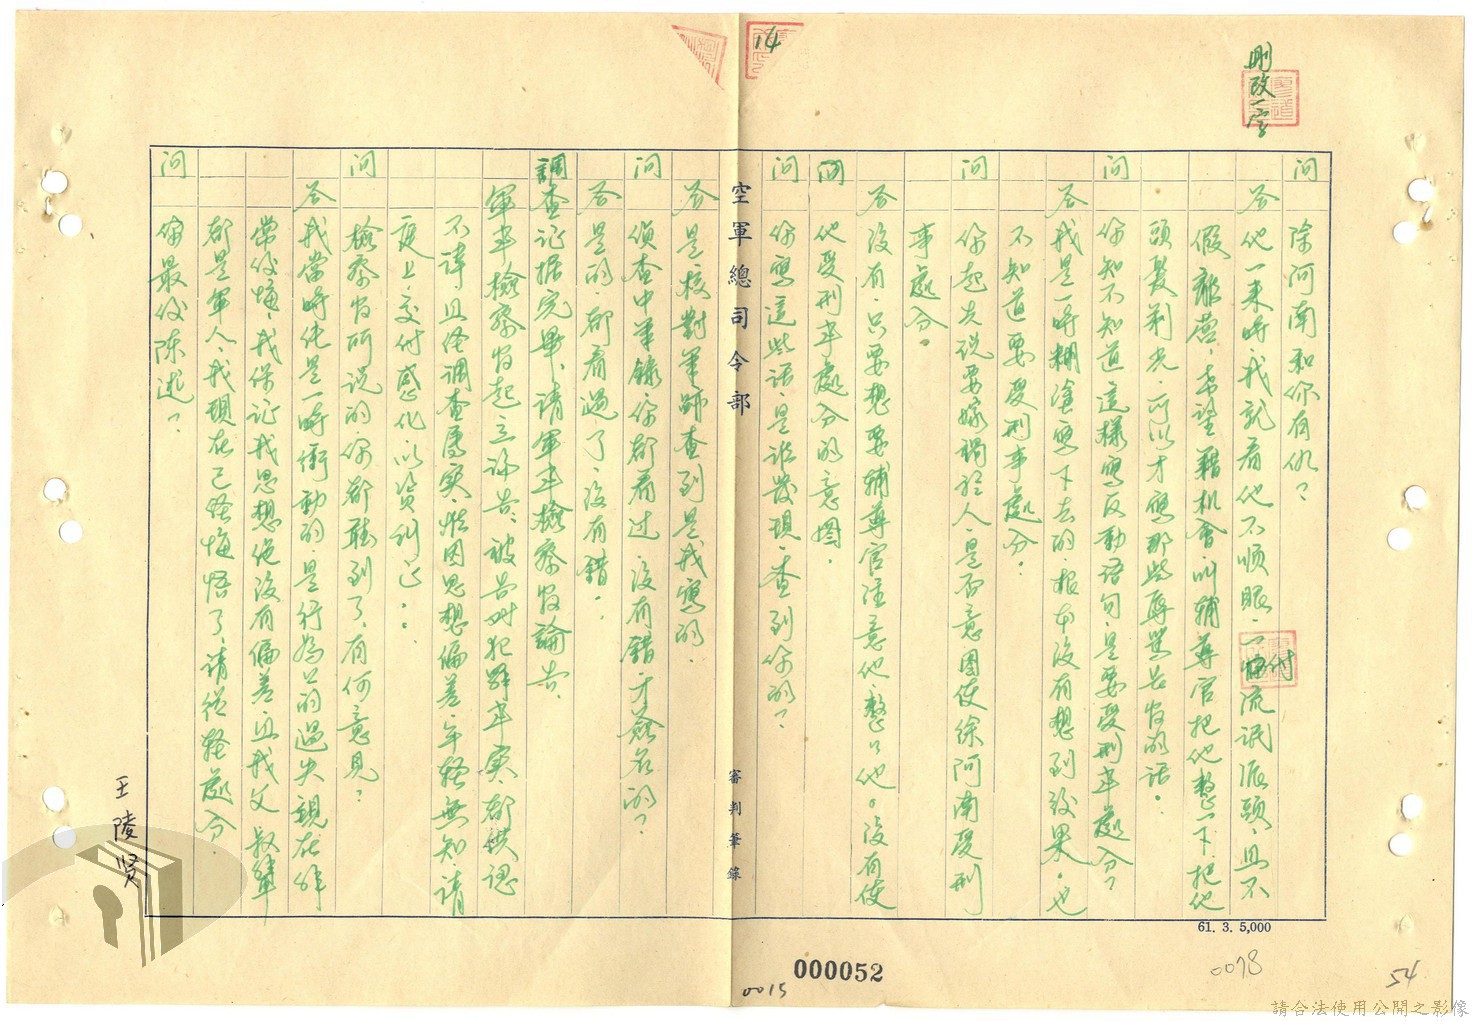 14
刪改一字
問 徐阿南和你有仇？
答 他一來時我就看他不順眼，一付流氓派頭，且不
假離營，希望藉机會叫輔導官把他整一下把他
頭髮剃光，所以才寫那些辱罵長官的話。
問 你知不知道這樣寫反動語句，是要受刑事處分？
答 我是一時糊塗寫下去的根本沒有想到後果，也
不知道要受刑事處分。
問 你起先說要嫁禍於人，是否意圖使徐阿南受刑
事處分。
答 沒有，只要想要輔導官注意他，整以他。沒有使
他受刑事處分的意圖。
問 你寫這些話，是誰發現，查到你的？
空軍總司令部
審判筆錄
答 是核對筆跡查到是我寫的。
問 偵查中筆錄，你都看过，沒有錯，才簽名的？
答 是的，都看過了，沒有錯。
調查証据完畢，請軍事檢察官論告。
軍事檢察官起立論告，被告叫犯罪事实，都供認
不諱且経調查属实，惟因思想偏差，年輕無知，請
庭上，交付感化，以資糾正。
問 檢察官所説的，你都聽到了，有何意見？
答 我當時純是一時衝動的，是行為上的過失現在非
常後悔，我保证我思想絕沒有偏差，且我父叔輩
都是軍人，我現在已経悔悟了，請從輕處分。
問 你最後陳述？
王陵賢
61. 3. 5,000
000052
0015
0078
54
請合法使用公開之影像